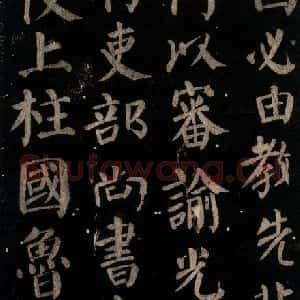 固必由教先非
何以審諭光
行吏部尚書
使上柱國魯
Shufawang.cn